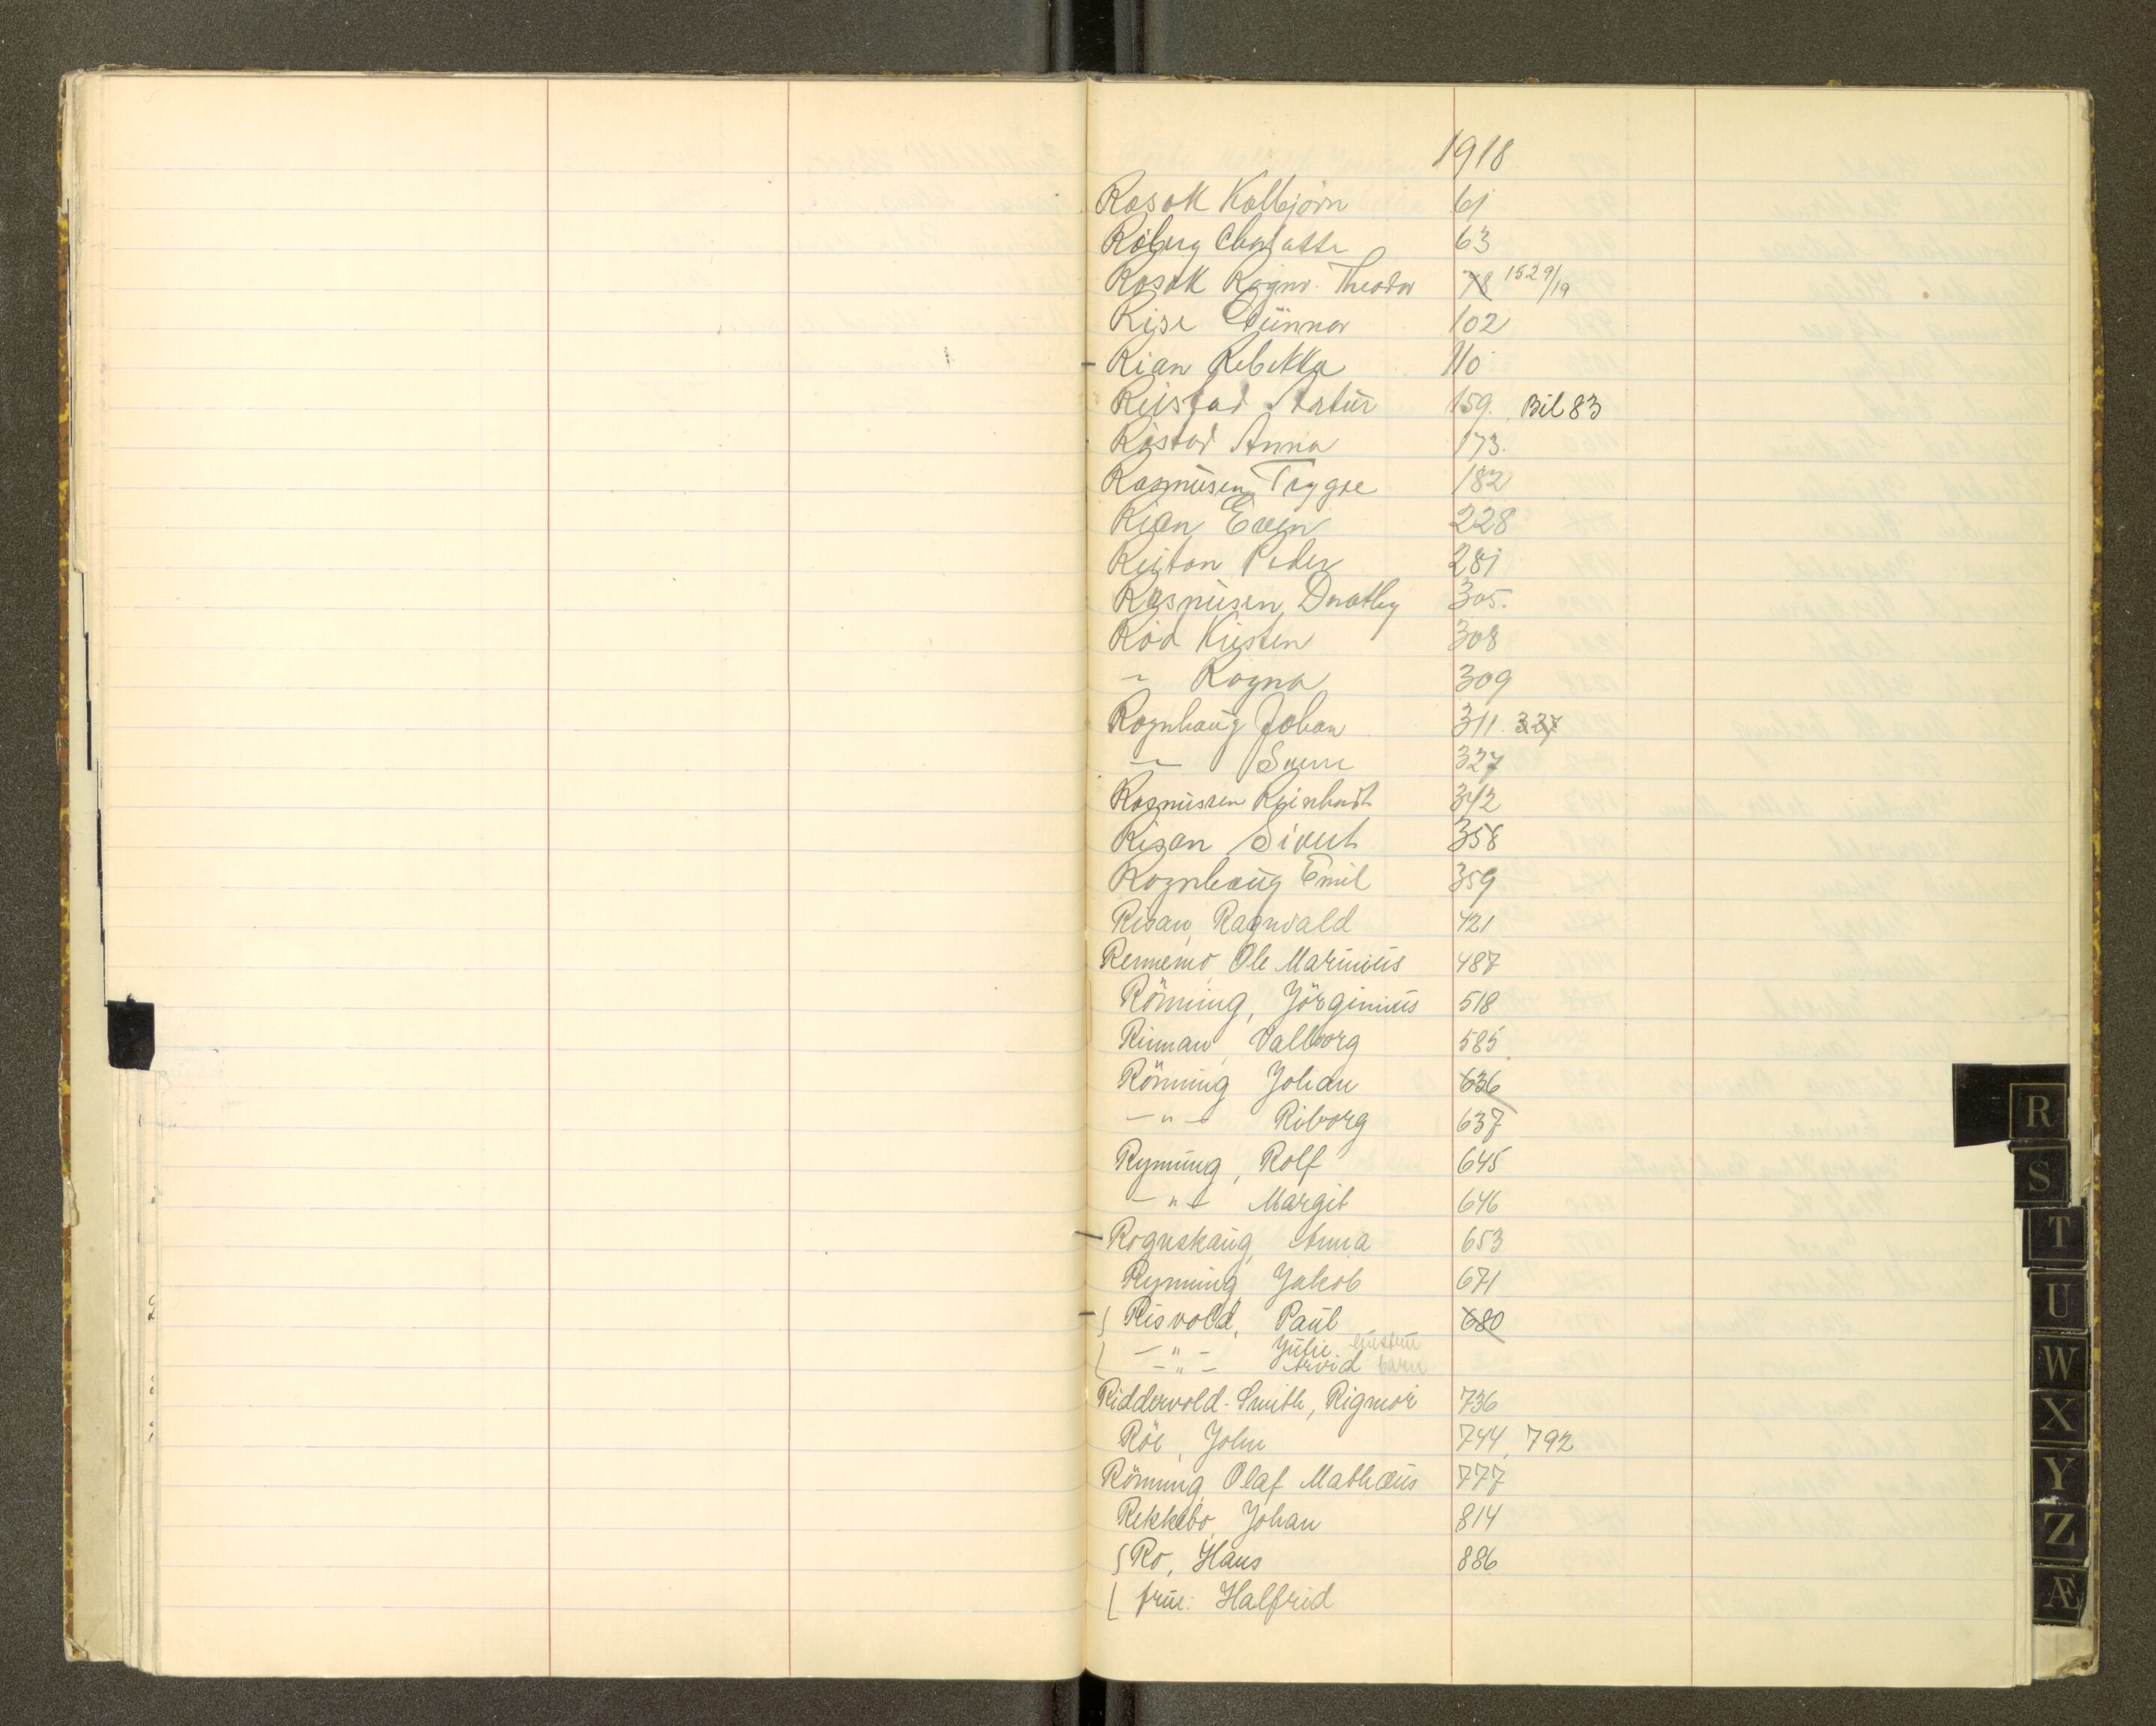 1918
Rasok Kolbjørn 61
Röberg Charlotte 63
Rosok Ragnv. Theodor 78 1529/19
Rise Gunnar 102
- Rian Rebekka 110
Reistad Artur 159. Bil 83
Röstad Anna 173.
Rasmusen Trygve 182
Rian Even 228
Reitan Peder 281
Rasmusen Dorothy 305.
Röd Kirsten 308
" Ragna 309
Rognhaug Johan 311. 327
— Sverre 327
Rasmussen Reinhardt 342
Risan Sivert 358
Rognhaug Emil 359
Risan, Ragnvald 421
Rennemo, Ole Marinius 487
Rönning, Jörginius 518
Rinnan, Valborg 585
Rönning Johan 636
— " — Riborg 637
Rynning, Rolf 645
— " — Margit 646
- Rognskaug, Anna 653
Rynning, Jakob 671
- Risvold, Paul 680
— " — Julie hustru
— " — Arvid barn
Riddervold-Smith, Rigmor 736
Röe, John 744, 792
Rönning, Olaf Mathæus 777
Rekkebo, Johan 814
Ro, Hans 886
frue: Halfrid
R
S
T
U
W
X
Y
Z
Æ